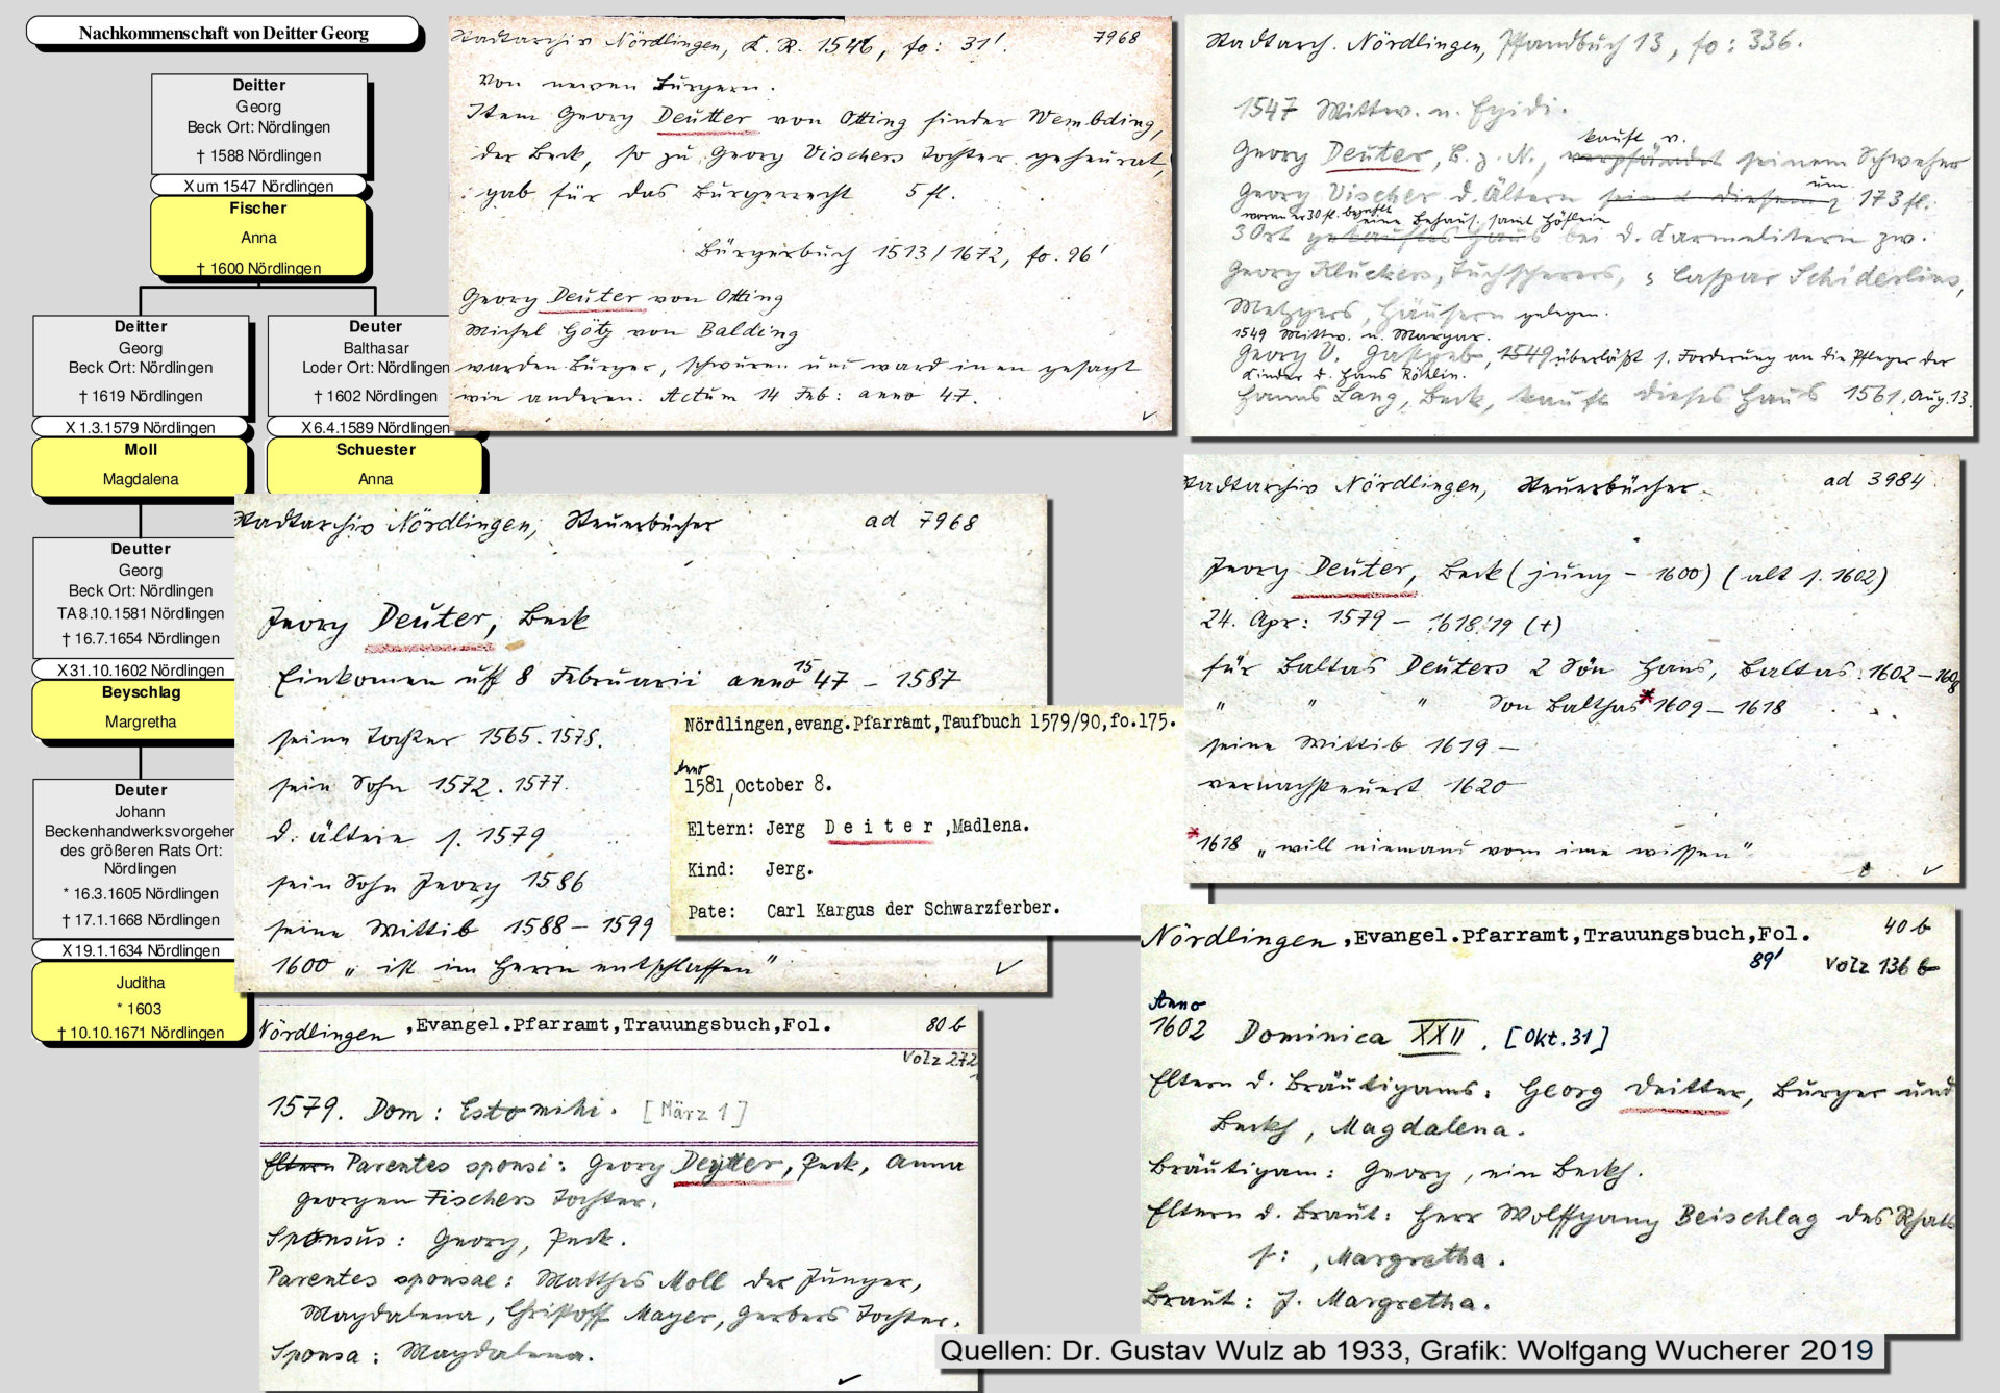 Nachkommenschaft von Deitter Georg
Deitter
Georg
Beck Ort: Nördlingen
† 1588 Nördlingen
X um 1547 Nördlingen
Fischer
Anna
† 1600 Nördlingen
Deitter
Georg
Beck Ort: Nördlingen
† 1619 Nördlingen
X 1.3.1579 Nördlingen
Moll
Magdalena
Deuter
Balthasar
Loder Ort: Nördlingen
† 1602 Nördlingen
X 6.4.1589 Nördlingen
Schuester
Anna
Deutter
Georg
Beck Ort: Nördlingen
TA 8.10.1581 Nördlingen
† 16.7.1654 Nördlingen
X 31.10.1602 Nördlingen
Beyschlag
Margretha
Deuter
Johann
Beckenhandwerksvorgeher
des größeren Rats Ort:
Nördlingen
* 16.3.1605 Nördlingen
† 17.1.1668 Nördlingen
X 19.1.1634 Nördlingen
Juditha
* 1603
† 10.10.1671 Nördlingen
Stadtarchiv Nördlingen, K. R. 1546, fo: 31'. 7968
Von neuen Burgern.
Item Georg Deutter von Otting hinder Wembding,
der Beck, so zu Georg Vischers Tochter geheurat,
gab für das Bürgerrecht 5 fl.
Bürgerbuch 1513/1672, fo. 96'
Georg Deuter von Otting
Michel Götz von Balding
warden Burger, schwuren und ward inen gesagt
wie anderen. Actum 14 Feb: anno 47.
Stadtarch. Nördlingen, Pfandbuch 13, fo: 336.
1547 Mittw. n. Egidi.
kauft v.
Georg Deuter, B. z. N., verpfändet seinem Schweher
Georg Vischer d. Ältern um 173 fl.
woran er 30 fl. bezahlt eine Behaus. samt Höflein
3 Ort gekauftes Haus bei d. Karmelitern zw.
Georg Kluckers, Tuchscherers, Caspar Schiderlins,
Metzgers, Häusern gelegen.
1549 Mittw. n. Margar.
Georg V. 1549 überläßt s. Forderung an die Pfleger der
Kinder d. Hans Röhlin.
Hanns Lang, Beck, kauft dieses Haus 1561. Aug. 13.
Stadtarchiv Nördlingen, Steuerbücher ad 7968
Georg Deuter, Beck
Einkomen uff 8 Februarii anno 1547 – 1587
seine Tochter 1565. 1578.
sein Sohn 1572. 1577.
d. ältere s. 1579
sein Sohn Georg 1586
seine Wittib 1588 – 1599
1600 „ist im Herrn entschlaffen"
Nördlingen,evang.Pfarramt,Taufbuch 1579/90,fo.175.
Anno
1581,October 8.
Eltern: Jerg Deiter,Madlena.
Kind: Jerg.
Pate: Carl Kargus der Schwarzferber.
Stadtarchiv Nördlingen, Steuerbücher. ad 3984
Georg Deuter, Beck (jung – 1600) (alt s. 1602)
24. Apr: 1579 – 1618/19 (+)
für Baltas Deuters 2 Sön Hans, Baltas: 1602 – 1608
" " " Son Balthas* 1609 – 1618
seine Wittib 1619 –
vernachsteuert 1620
*1618 „will niemand vom ime wissen"
Nördlingen ,Evangel.Pfarramt,Trauungsbuch,Fol. 80 b
Volz 272
1579. Dom: Estomihi. [März 1]
Eltern Parentes sponsi: Georg Deytter, Peck, Anna
Georgen Fischers Tochter.
Sponsus: Georg, Peck.
Parentes sponsae: Matthes Moll der Jünger,
Magdalena, Christoff Mayer, Gerbers Tochter.
Sponsa: Magdalena.
Nördlingen ,Evangel.Pfarramt,Trauungsbuch,Fol. 40 b
89' Volz 136 b
Anno
1602 Dominica XXII. [Okt. 31]
Eltern d. Bräutigams: Georg Deitter, Burger und
Beckh, Magdalena.
Bräutigam: Georg, ein Beckh.
Eltern d. Braut: Herr Wolffgang Beischlag des Rhats
s: , Margretha.
Braut: J. Margretha.
Quellen: Dr. Gustav Wulz ab 1933, Grafik: Wolfgang Wucherer 2019